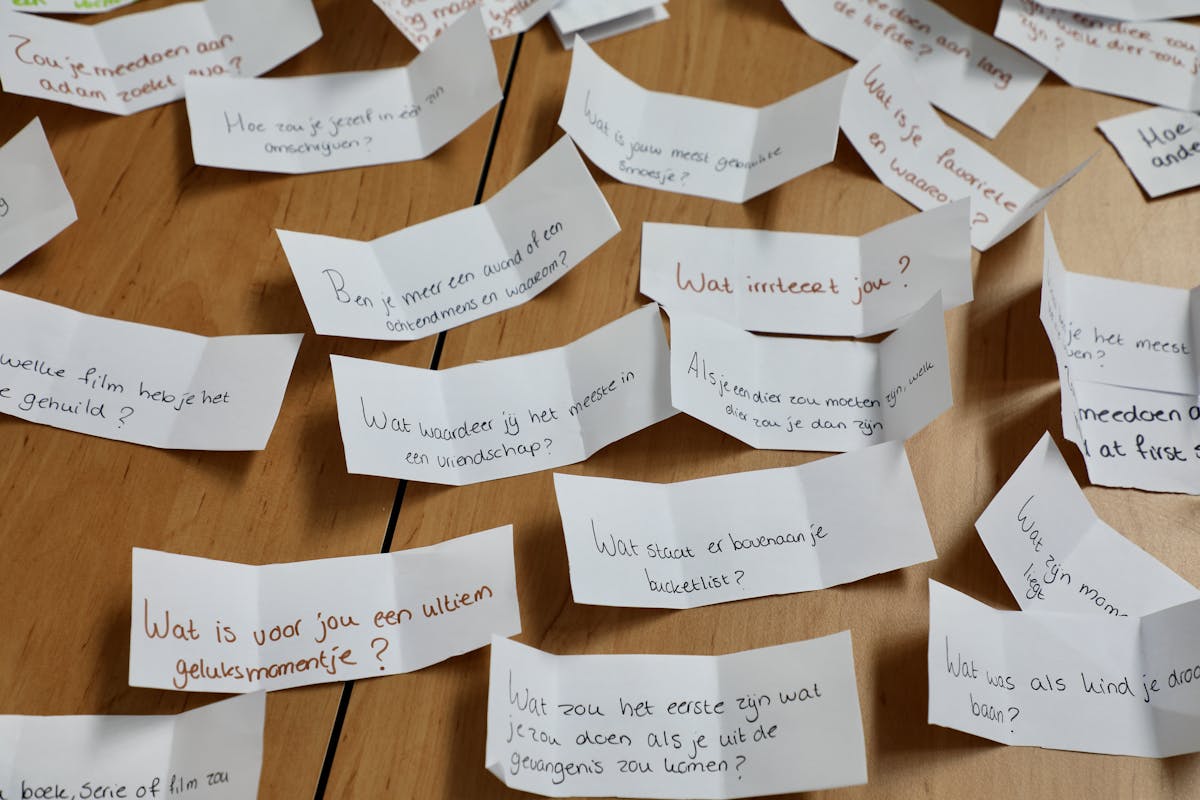 Zou je meedoen aan
adam zoekt eva?
ng maar
de liefde?
meedoen aan lang
zijn?
welk dier zou j
Hoe zou je jezelf in één zin
omschrijven?
Wat is jouw meest gebruikte
smoesje?
Wat is je favoriete
en waarom?
Hoe
ander
g
Ben je meer een avond of een
ochtendmens en waarom?
Wat irriteert jou?
welke film heb je het
e gehuild?
Wat waardeer jij het meeste in
een vriendschap?
Als je een dier zou moeten zijn, welk
dier zou je dan zijn
je het meest
ven?
meedoen a
at first s
Wat staat er bovenaan je
bucketlist?
Wat zijn mom
liegt
Wat is voor jou een ultiem
geluksmomentje?
Wat zou het eerste zijn wat
je zou doen als je uit de
gevangenis zou komen?
Wat was als kind je droo
baan?
boek, serie of film zou